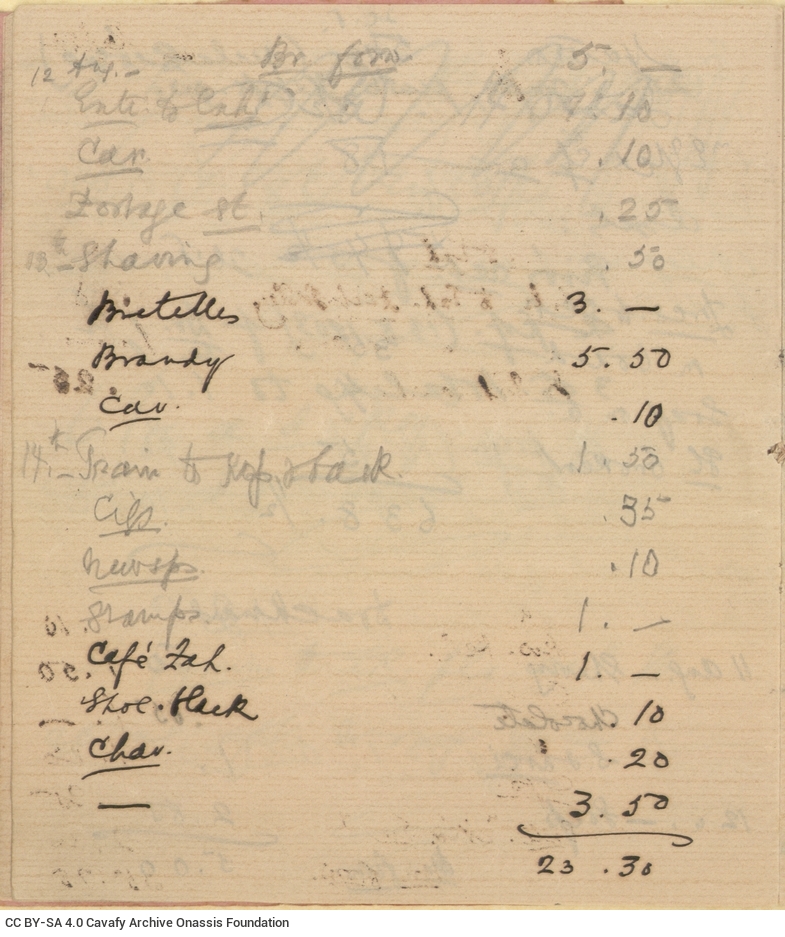 12 Aug.– Br. forw. 5. —
Ente to Exh. 1.10
Car. .10
Postage st. .25
13th – Shaving .50
Bretelles 3. —
Brandy 5.50
Car. .10
14th – Train to Kef. & back. 1.50
Cigs. .35
Newsps. .10
Stamps. 1. —
Café Zah. 1. —
Shoe-black .10
Char. .20
— 3.50
23.30
CC BY-SA 4.0 Cavafy Archive Onassis Foundation